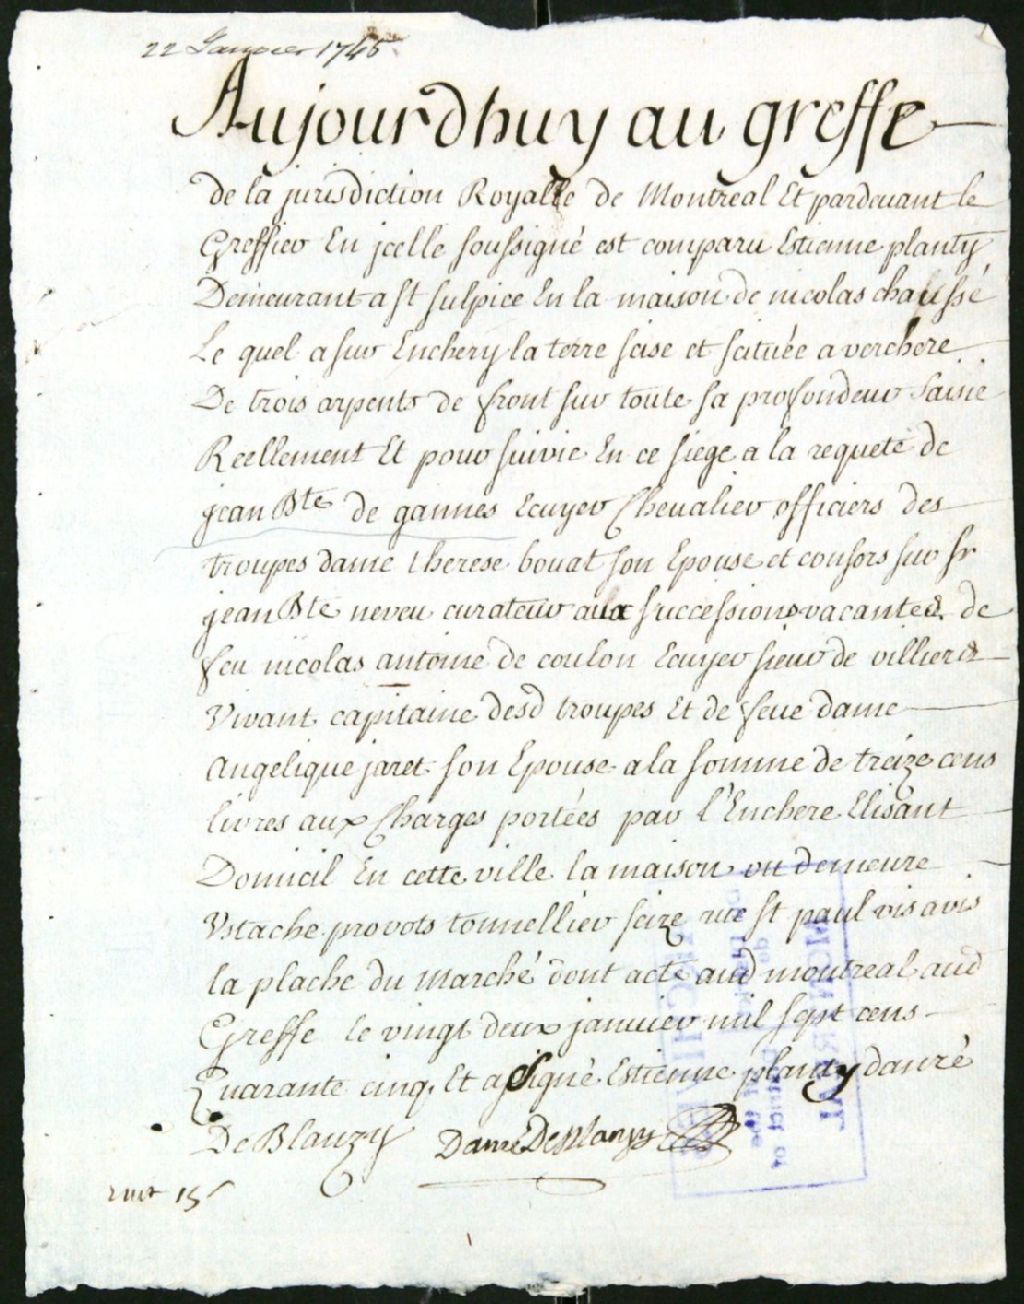 22 Janvier 1745
Aujourdhuy au greffe
de la jurisdiction Royalle de Montreal Et pardevant le
Greffier En jcelle soussigné est comparu Estienne planty
Demeurant a St sulpice En la maison de nicolas chaussé
Le quel a sur Enchery la terre scise et scituée a verchere
De trois arpents de front sur toute sa profondeur saisie
Reellement Et poursuivie En ce siege a la requete de
jean Bte de gannes Ecuyer Chevalier officiers des
troupes dame therese bouat son Epouse et consors sur sr
jean Bte neveu curateur aux successions vacantes de
feu nicolas antoine de coulon Ecuyer sieur de villiers
Vivant capitaine desd troupes Et de feue dame
Angelique jaret son Epouse a la somme de treize cens
livres aux Charges portées par l'Enchere Elisant
Domicil En cette ville la maison ou demeure
Ustache provots tonnellier scize rue st paul vis avis
la plache du marché dont acte aud montreal aud
Greffe le vingt deux janvier mil sept cens
Quarante cinq Et a signé Estienne planty danré
De Blanzy Danré DeBlanzy
15s